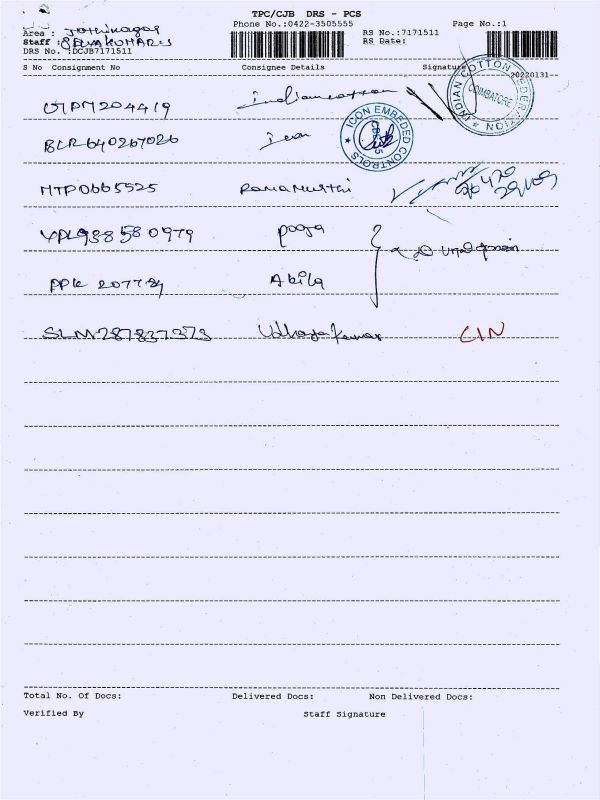 TPC/CJB DRS - PCS
Phone No.:0422-3505555 Page No.:1
Area : Jothinagar RS No.:7171511
Staff : RS Date:
DRS No.:DCJB7171511
20220131-
S No Consignment No Consignee Details Signature
INDIAN COTTON FEDERATION
COIMBATORE
204419 Indiancotton
BLR640267026 Icon
ICON EMBEDED CONTROLS
MTP0665525 Ramamurthi
VPL988580979 pooja
PPK 207784 Akila
SLM287837373 Udhayakumar CIN
Total No. Of Docs: Delivered Docs: Non Delivered Docs:
Verified By Staff Signature